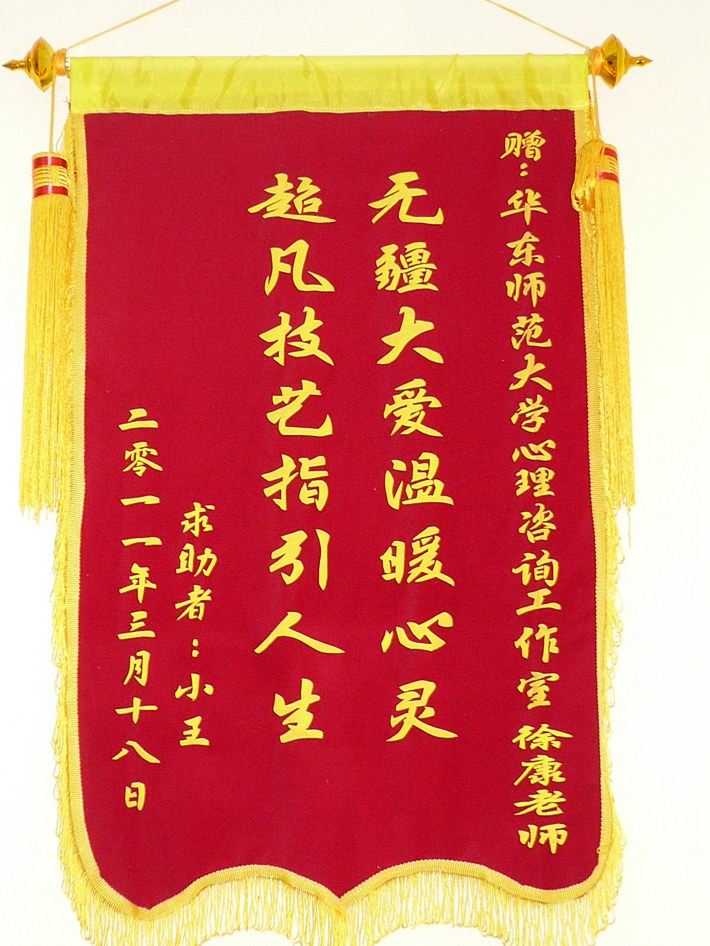 赠：华东师范大学心理咨询工作室 徐康老师
无疆大爱温暖心灵
超凡技艺指引人生
求助者：小王
二零一一年三月十八日